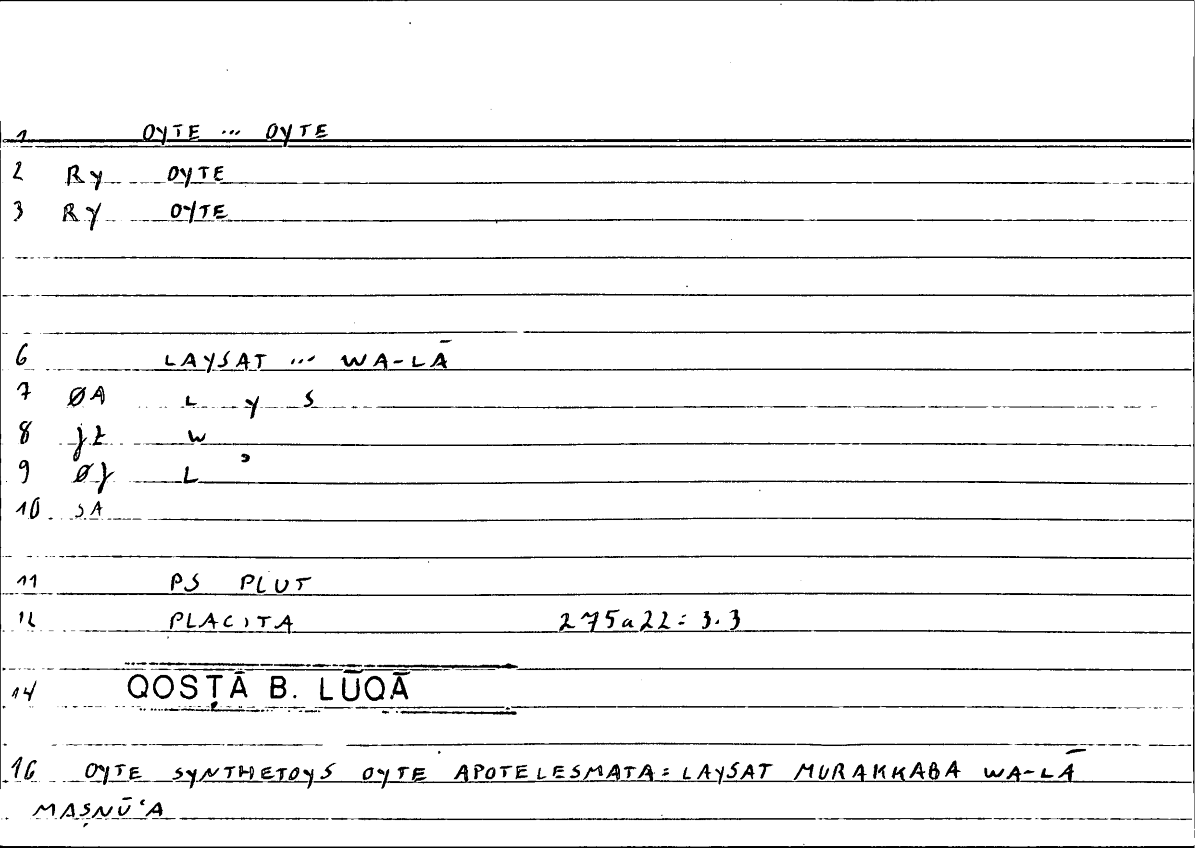 1 OYTE ... OYTE
2 Ry OYTE
3 RY OYTE
6 LAYSAT ... WA-LĀ
7 ØA L Y S
8 jt w
9 Øj L ʾ
10 SA
11 PS PLUT
12 PLACITA 275a22 = 3.3
14 QOSṬĀ B. LŪQĀ
16 OYTE SYNTHETOYS OYTE APOTELESMATA = LAYSAT MURAKKABA WA-LĀ
MAṢNŪʿA